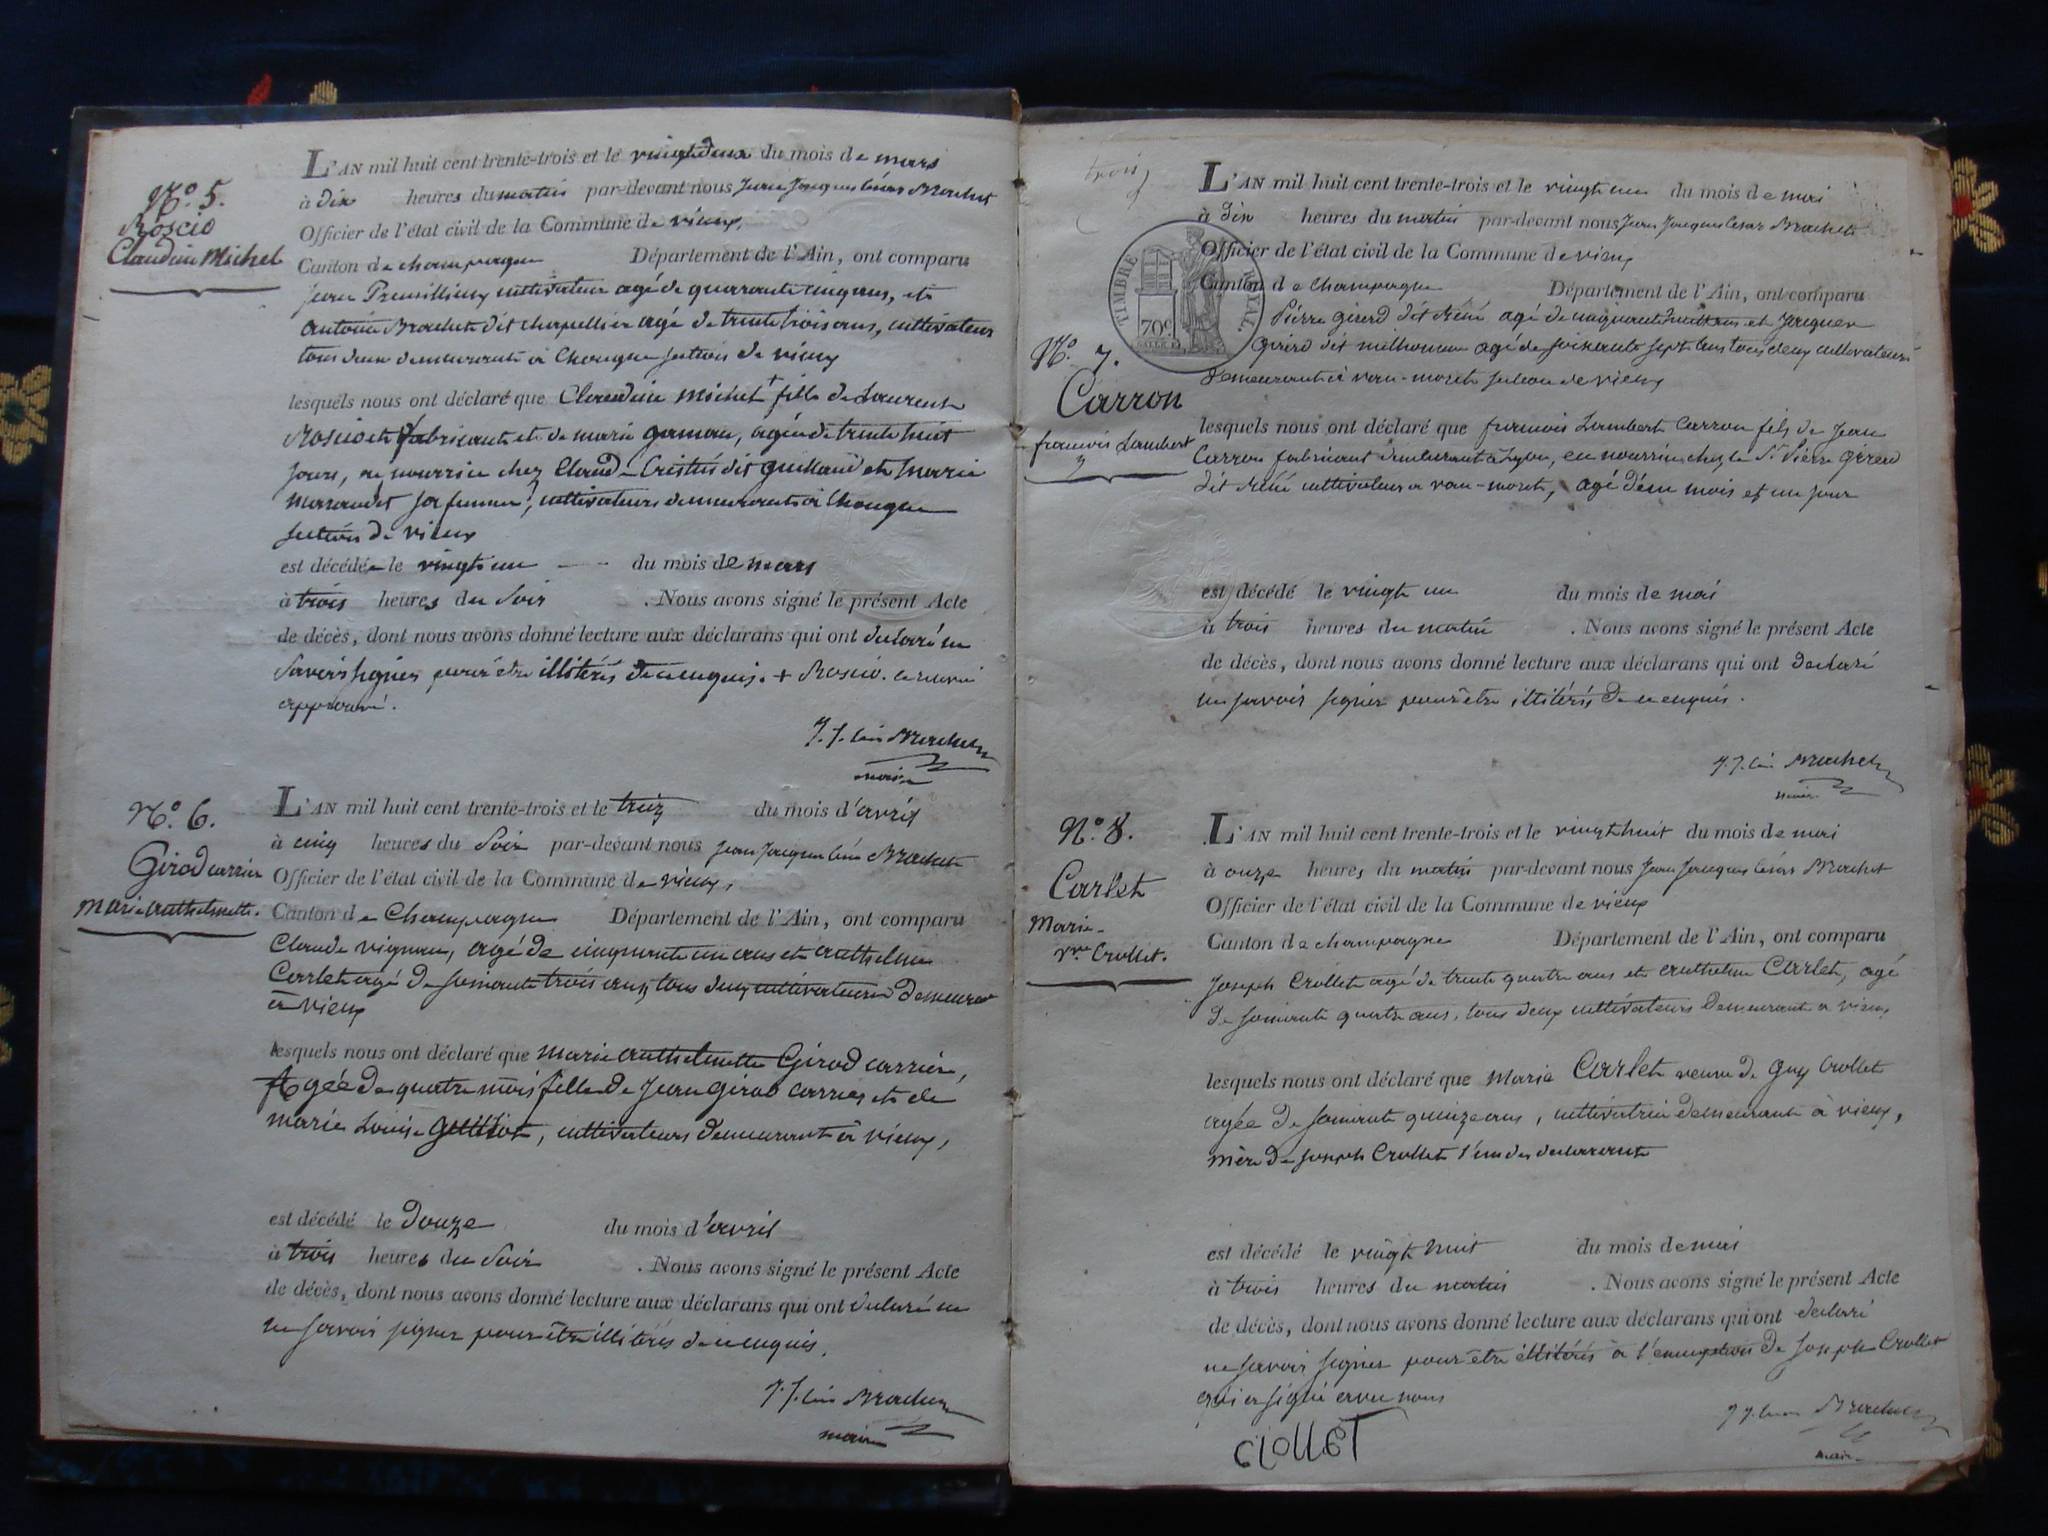 N.° 5.
Roscio
Claudine Michel
L'AN mil huit cent trente-trois et le vingtdeux du mois de mars
à dix heures du matin par-devant nous Jean Jacques César Brachet
Officier de l'état civil de la Commune de vieux,
Canton de champagne Département de l'Ain, ont comparu
Jean cultivateur agé de quarante cinq ans, et
antoine Brachet dit chapellier agé de trente trois ans, cultivateurs
tous deux demeurants à Chongne section de vieux
lesquels nous ont déclaré que Claudine Michel + fille de Laurent
Roscio et fabricant et de marie, agée de trente huit
jours, en nourrice chez Claude Cristin dit Guillaud et marie
sa femme, cultivateurs demeurants à Chongne
section de vieux
est décédée le vingt un du mois de mars
à trois heures du soir . Nous avons signé le présent Acte
de décès, dont nous avons donné lecture aux déclarans qui ont déclaré ne
savoir signer pour être illitérés de ce enquis. + Roscio. ce renvoi
approuvé.
J. J. César Brachet
maire
N.° 6.
Girod carrier
Marie anthelmette.
L'AN mil huit cent trente-trois et le treiz du mois d'avril
à cinq heures du soir par-devant nous jean jacques César Brachet
Officier de l'état civil de la Commune de vieux,
Canton de Champagne Département de l'Ain, ont comparu
Claude vignau, agé de cinquante un ans et anthelme
Carlet agé de soixante trois ans, tous deux cultivateurs demeurant
à vieux
lesquels nous ont déclaré que marie anthelmette Girod carrier,
Agée de quatre mois fille de Jean Girod carrier et de
marie Louise Guilliot, cultivateurs demeurant à vieux,
est décédé le douze du mois d'avril
à trois heures du soir . Nous avons signé le présent Acte
de décès, dont nous avons donné lecture aux déclarans qui ont déclaré
ne savoir signer pour être illitérés de ce enquis.
J. J. César Brachet
maire
trois
TIMBRE ROYAL.
70c
N.° 7.
Carron
françois Lambert
L'AN mil huit cent trente-trois et le vingt un du mois de mai
à dix heures du matin par-devant nous Jean Jacques César Brachet
Officier de l'état civil de la Commune de vieux
Canton de Champagne Département de l'Ain, ont comparu
Pierre girerd dit Réné agé de cinquante huit ans et Jacques
girerd dit milhomme agé de soixante sept ans tous deux cultivateurs
demeurant à vau-moret section de vieux
lesquels nous ont déclaré que françois Lambert Carron fils de Jean
Carron fabricant demeurant à Lyon, en nourrice chez le Sr Pierre girerd
dit Réné cultivateur à vau-moret, agé d'un mois et un jour
est décédé le vingt un du mois de mai
à trois heures du matin . Nous avons signé le présent Acte
de décès, dont nous avons donné lecture aux déclarans qui ont déclaré
ne savoir signer pour être illitérés de ce enquis.
J. J. César Brachet
maire
N.° 8.
Carlet
Marie
Vve Crollet.
L'AN mil huit cent trente-trois et le vingt huit du mois de mai
à onze heures du matin par-devant nous Jean Jacques César Brachet
Officier de l'état civil de la Commune de vieux
Canton de champagne Département de l'Ain, ont comparu
Joseph Crollet agé de trente quatre ans et anthelme Carlet, agé
de soixante quatre ans, tous deux cultivateurs demeurant à vieux
lesquels nous ont déclaré que Marie Carlet veuve de Guy Crollet
agée de soixante quinze ans, cultivatrice demeurante à vieux,
mère de Joseph Crollet l'un des déclarants
est décédé le vingt huit du mois de mai
à trois heures du matin . Nous avons signé le présent Acte
de décès, dont nous avons donné lecture aux déclarans qui ont déclaré
ne savoir signer pour être illitérés à l'exception de Joseph Crollet
qui a signé avec nous
CrOllET
J J. César Brachet
maire